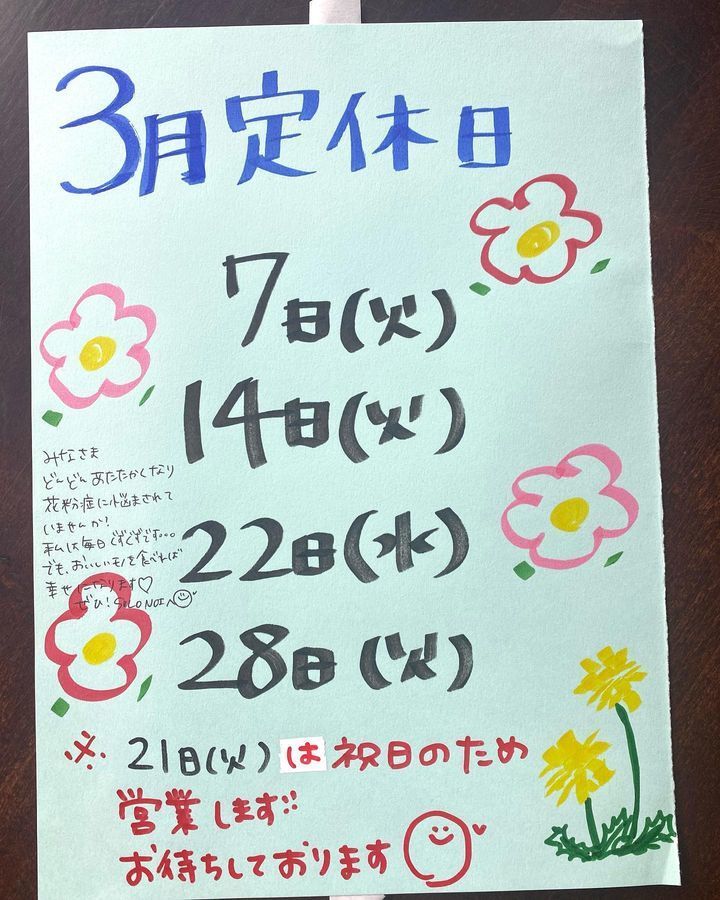 3月定休日
7日(火)
14日(火)
22日(水)
28日(火)
みなさま
どんどんあたたかくなり
花粉症に悩まされて
いませんか?
私は毎日ぐずぐずです。。。
でも、おいしいモノを食べれば
幸せになります♡
ぜひ!SOLO NOIへ
※21日(火)は祝日のため
営業します!!
お待ちしております